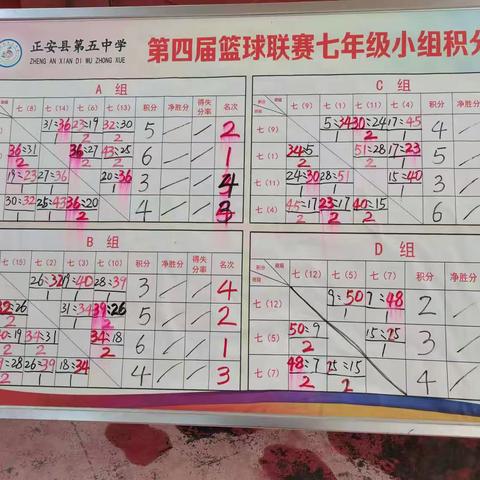 正安县第五中学
ZHENG AN XIAN DI WU ZHONG XUE
第四届篮球联赛七年级小组积分
A 组
七（8） 七（14） 七（6） 七（13） 积分 净胜分 得失分率 名次
31:36 1 23:19 2 32:30 2 5 2
36:31 2 36:27 2 43:25 2 6 1
19:23 1 27:36 1 20:36 1 3 4
30:32 1 25:43 1 36:20 2 4 3
B 组
七（15） 七（2） 七（3） 七（10） 积分 净胜分 得失分率 名次
26:32 1 19:40 1 28:39 1 3 4
32:26 2 31:34 1 39:26 2 5 2
40:19 2 34:31 2 34:18 2 6 1
39:28 2 26:39 1 18:34 1 4 3
C 组
七（9） 七（1） 七（11） 七（4） 积分 净胜分
七（9） 5:34 1 30:24 2 17:45 1 4
七（1） 34:5 2 51:28 2 17:23 1 5
七（11） 24:30 1 28:51 1 15:40 1 3
七（4） 45:17 2 23:17 2 40:15 2 6
D 组
七（12） 七（5） 七（7） 积分 净胜分
七（12） 9:50 1 7:48 1 2
七（5） 50:9 2 15:25 1 3
七（7） 48:7 2 25:15 2 4